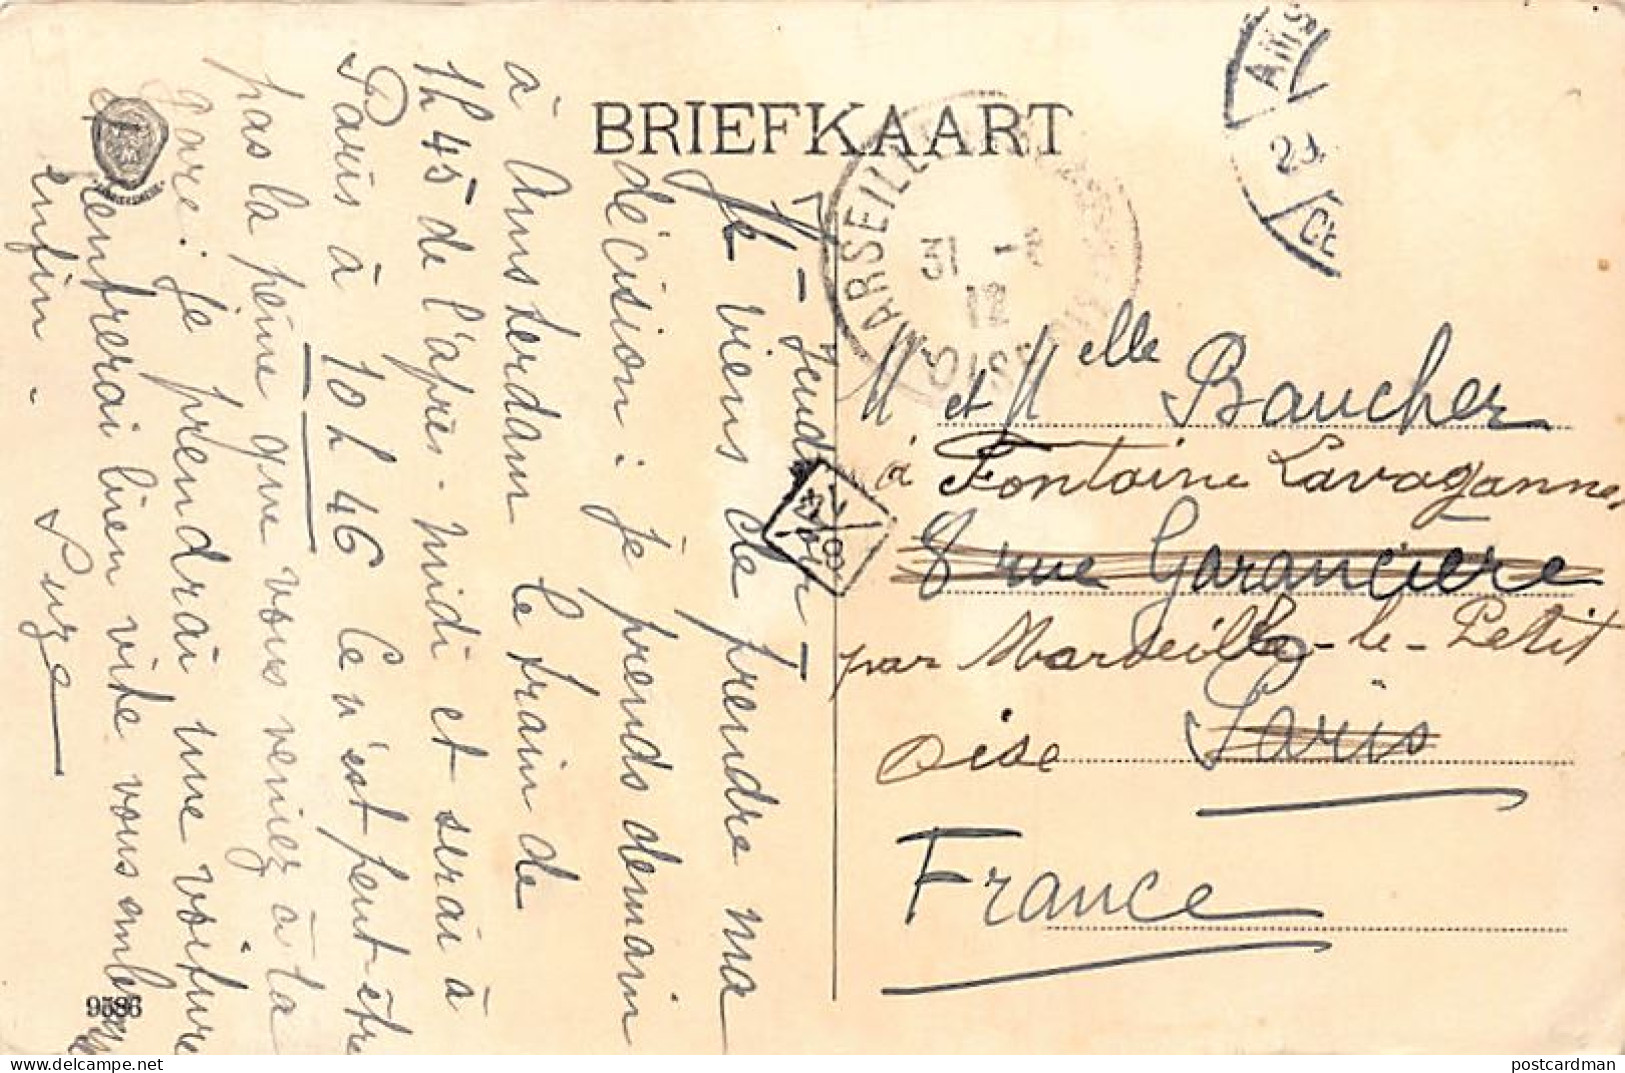 BRIEFKAART
Jeudi
Je viens de prendre ma
décision : je prends demain
à Amsterdam le train de
1h 45 de l'après-midi et serai à
Paris à 10h 46 Ce n'est peut-être
pas la peine que vous veniez à la
gare : je prendrai une voiture
bien vite vous embrasser
enfin.
Suze
M et Melle Baucher
à Fontaine Lavaganne
8 rue Garancière
par Marseille-le-Petit
Paris
Oise
France
MARSEILLE
OISE
31
12
AMS
29.
9586
postcardman